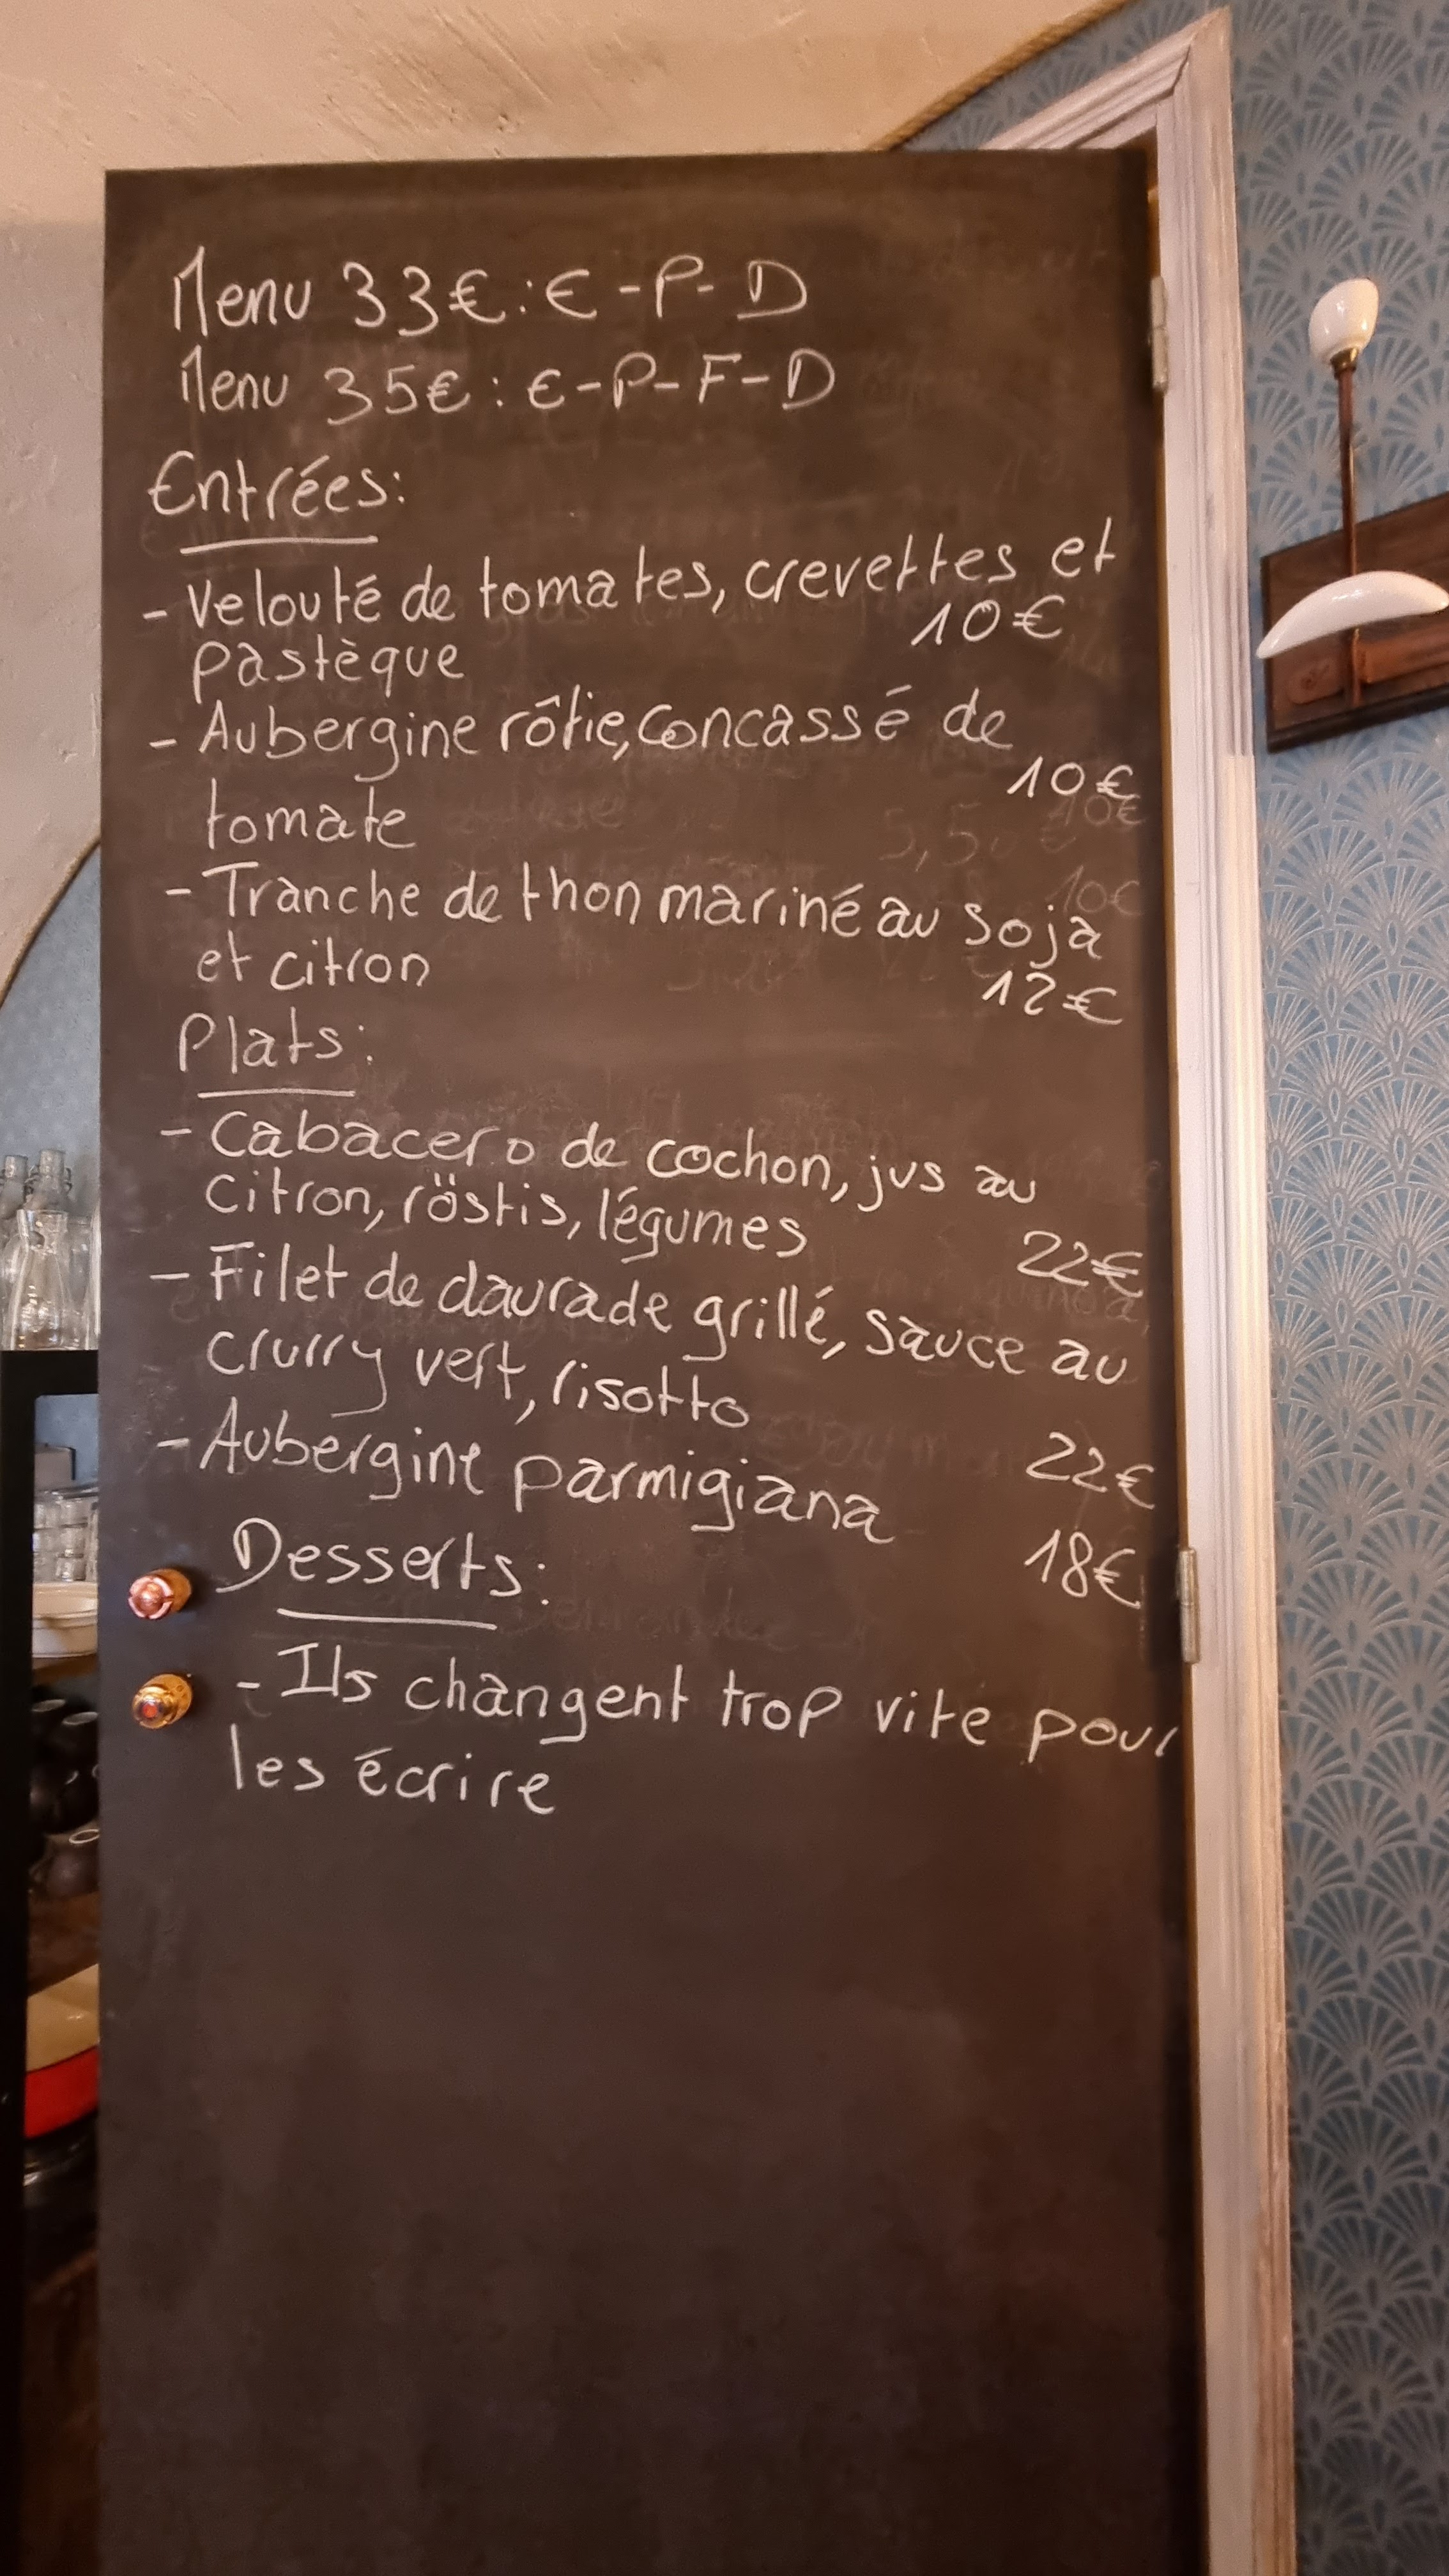 Menu 33€: E-P-D
Menu 35€: E-P-F-D
Entrées:
- Velouté de tomates, crevettes et
pastèque 10€
- Aubergine rôtie, concassé de
tomate 10€
- Tranche de thon mariné au soja
et citron 12€
Plats:
- Cabacero de cochon, jus au
citron, röstis, légumes 22€
- Filet de daurade grillé, sauce au
crurry vert, risotto 22€
- Aubergine parmigiana 18€
Desserts:
- Ils changent trop vite pour
les écrire